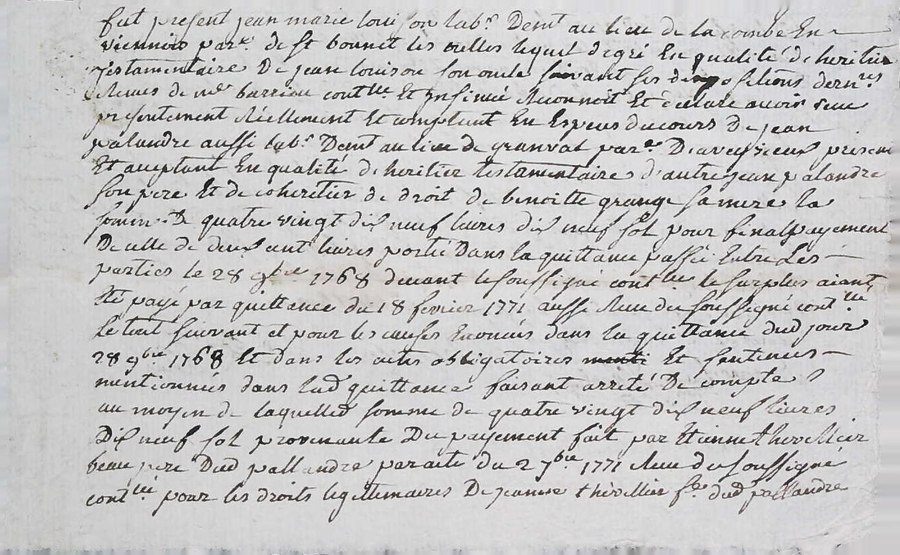 fut present jean marie louison lab.r Dem.t au lieu de la combe En
viennois par.e de St bonnet les oulles lequel degré En qualité d'heritier
testamentaire De jean louison son oncle suivant ses dispositions dern.res
Reçues de m.e barriou cont.lle Et Insinué Reconnoit Et declare avoir Reçu
presentement Réellement Et comptant En Especes du cours De jean
palandre aussi lab.r Dem.t au lieu de granval par.e Daveyzieux present
Et acceptant En qualité d'heritier testamentaires d'autre jean palandre
son pere Et de coheritier de droit de benoitte grange sa mere la
somme De quatre vingt dix neuf livres dix neuf sol pour final payement
De celle de deux cent livres porté Dans la quittance passée Entre Les
parties le 28 9bre 1768 devant le soussigné cont.lle le surplus aiant
Eté payé par quittance du 18 fevrier 1771 aussi Reçue du soussigné cont.lle
Le tout suivant et pour les causes Enoncés dans la quittance dud jour
28 9bre 1768 Et dans les actes obligatoires Et sentences
mentionnées dans lad quittance faisant arreté De compte
au moyen de laquelle somme de quatre vingt dix neuf livres
Dix neuf sol provenante Du payement fait par Etienne thevillier
beau pere Dud pallandre par acte du 2 7bre 1771 Reçu du soussigné
cont.llé pour les droits legitimaires De jeanne thévillier f.e dud pallandre